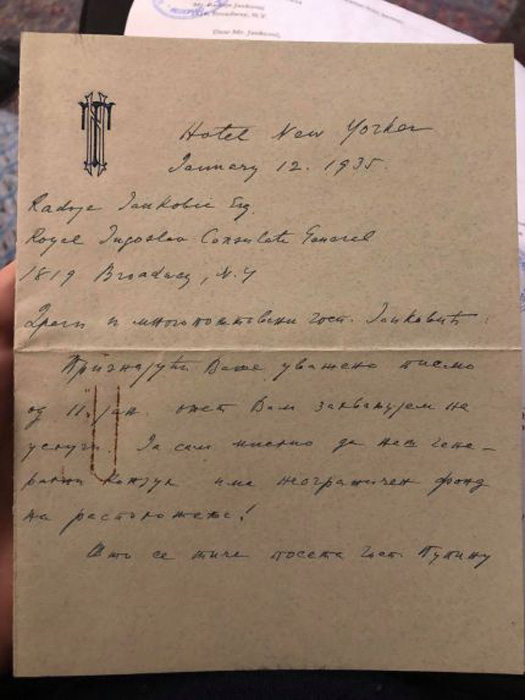 Mr. Radoje Jankovic,
Broadway, N.Y.
Dear Mr. Jankovic,
Hotel New Yorker
January 12. 1935.
Radoje Jankovic Esq.
Royal Jugoslav Consulate General
1819 Broadway, N.Y
Драги и многопоштовани госп. Јанковић:
Признајући Ваше уважено писмо
од 11. јан. опет Вам захваљујем на
услузи. Ја сам мислио да наш гене-
рални Конзул има неограничен фонд
на расположењу!
Што се тиче посета госп. Пупину